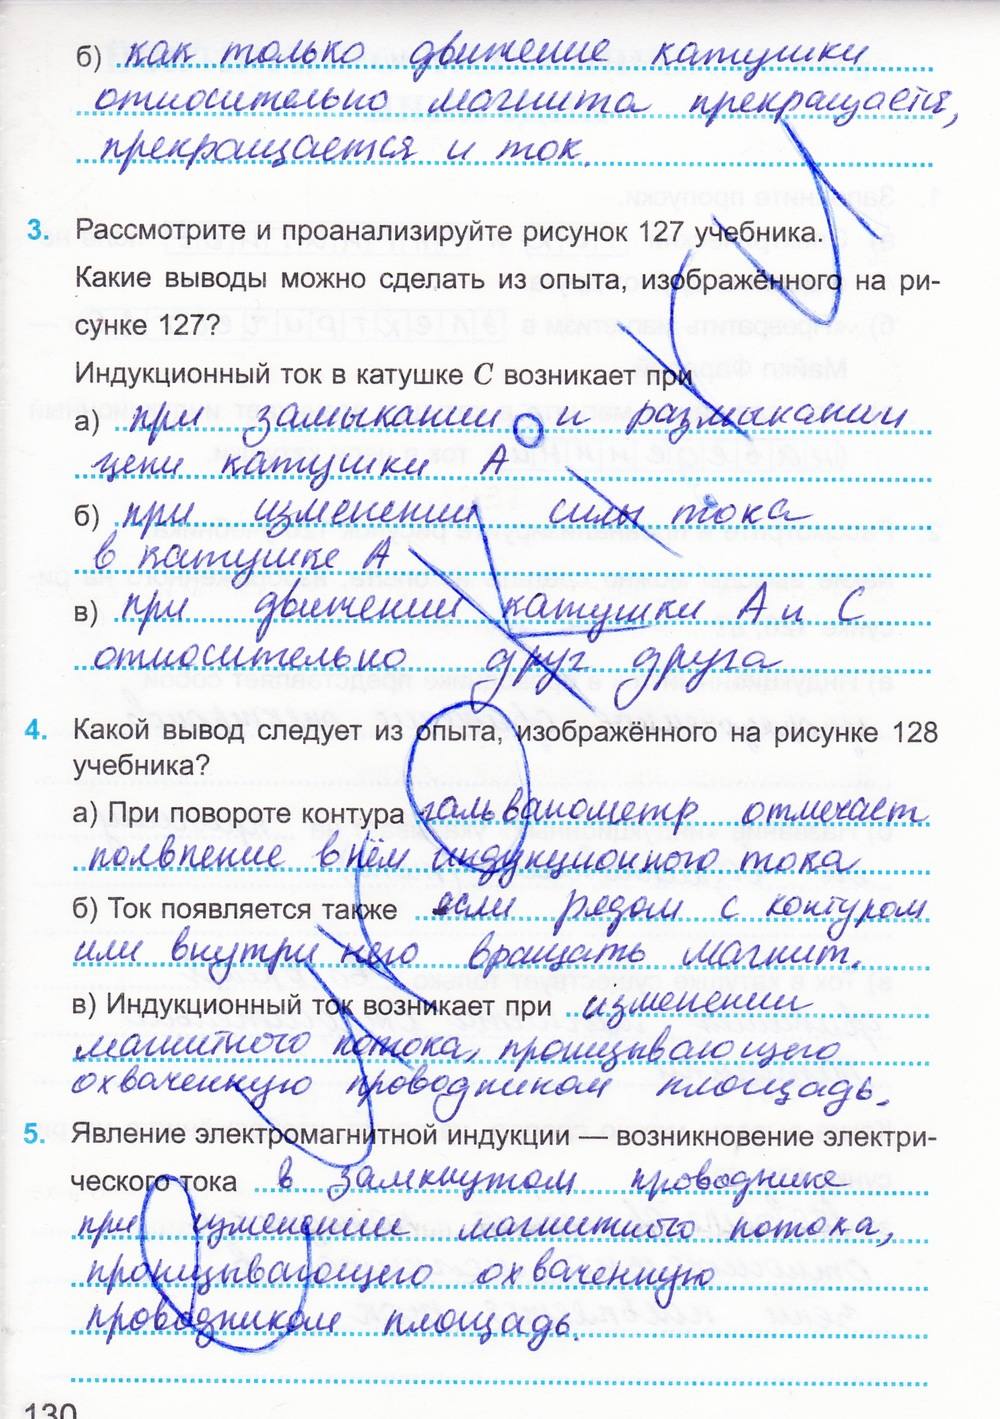 б) как только движение катушки
относительно магнита прекращается,
прекращается и ток.
3. Рассмотрите и проанализируйте рисунок 127 учебника.
Какие выводы можно сделать из опыта, изображённого на ри-
сунке 127?
Индукционный ток в катушке С возникает при
а) при замыкании и размыкании
цепи катушки А
б) при изменении силы тока
в катушке А
в) при движении катушки А и С
относительно друг друга
4. Какой вывод следует из опыта, изображённого на рисунке 128
учебника?
а) При повороте контура гальванометр отмечает
появление в нём индукционного тока
б) Ток появляется также если рядом с контуром
или внутри него вращать магнит.
в) Индукционный ток возникает при изменении
магнитного потока, пронизывающего
охваченную проводником площадь.
5. Явление электромагнитной индукции — возникновение электри-
ческого тока в замкнутом проводнике
при изменении магнитного потока,
пронизывающего охваченную
проводником площадь.
130